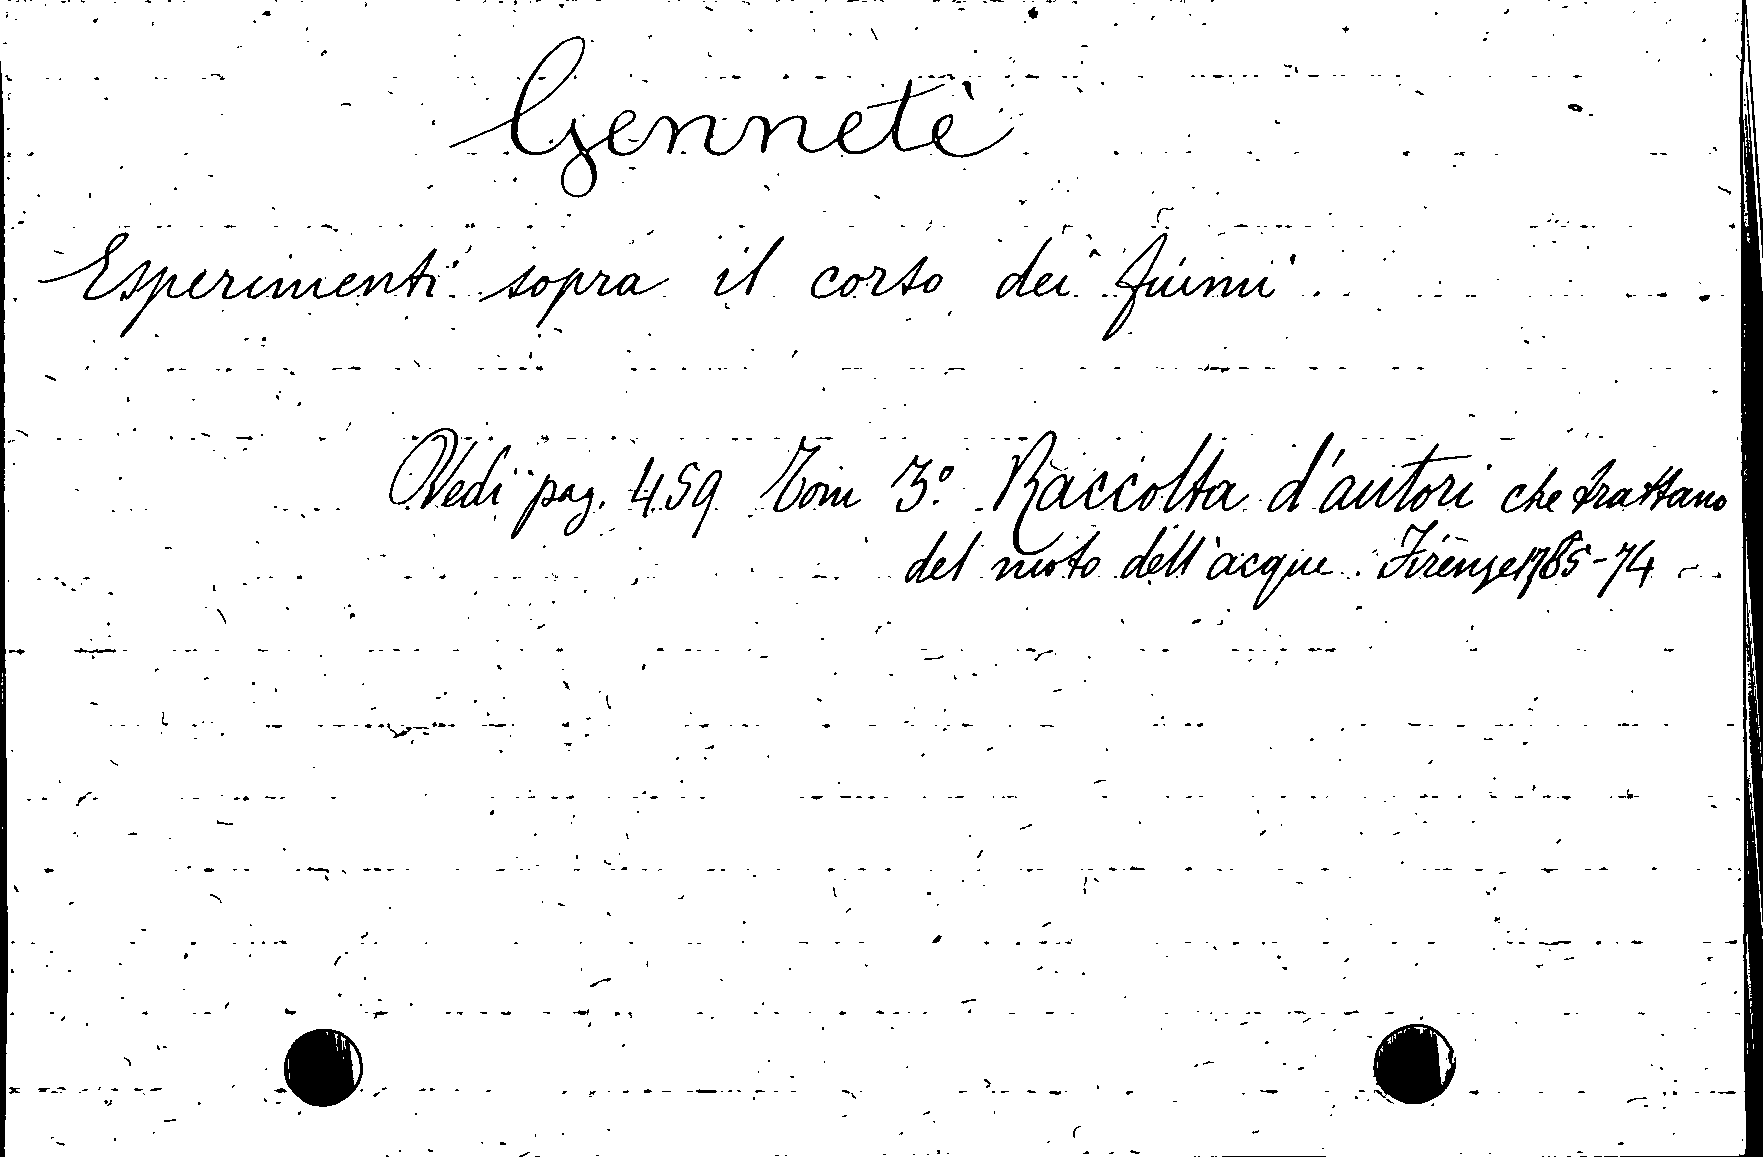 Gennetè
Esperimenti sopra il corso dei fiumi
Vedi pag. 459 Tom 3º. Raccolta d'autori che trattano
del moto dell'acque. Firenze 1765-74